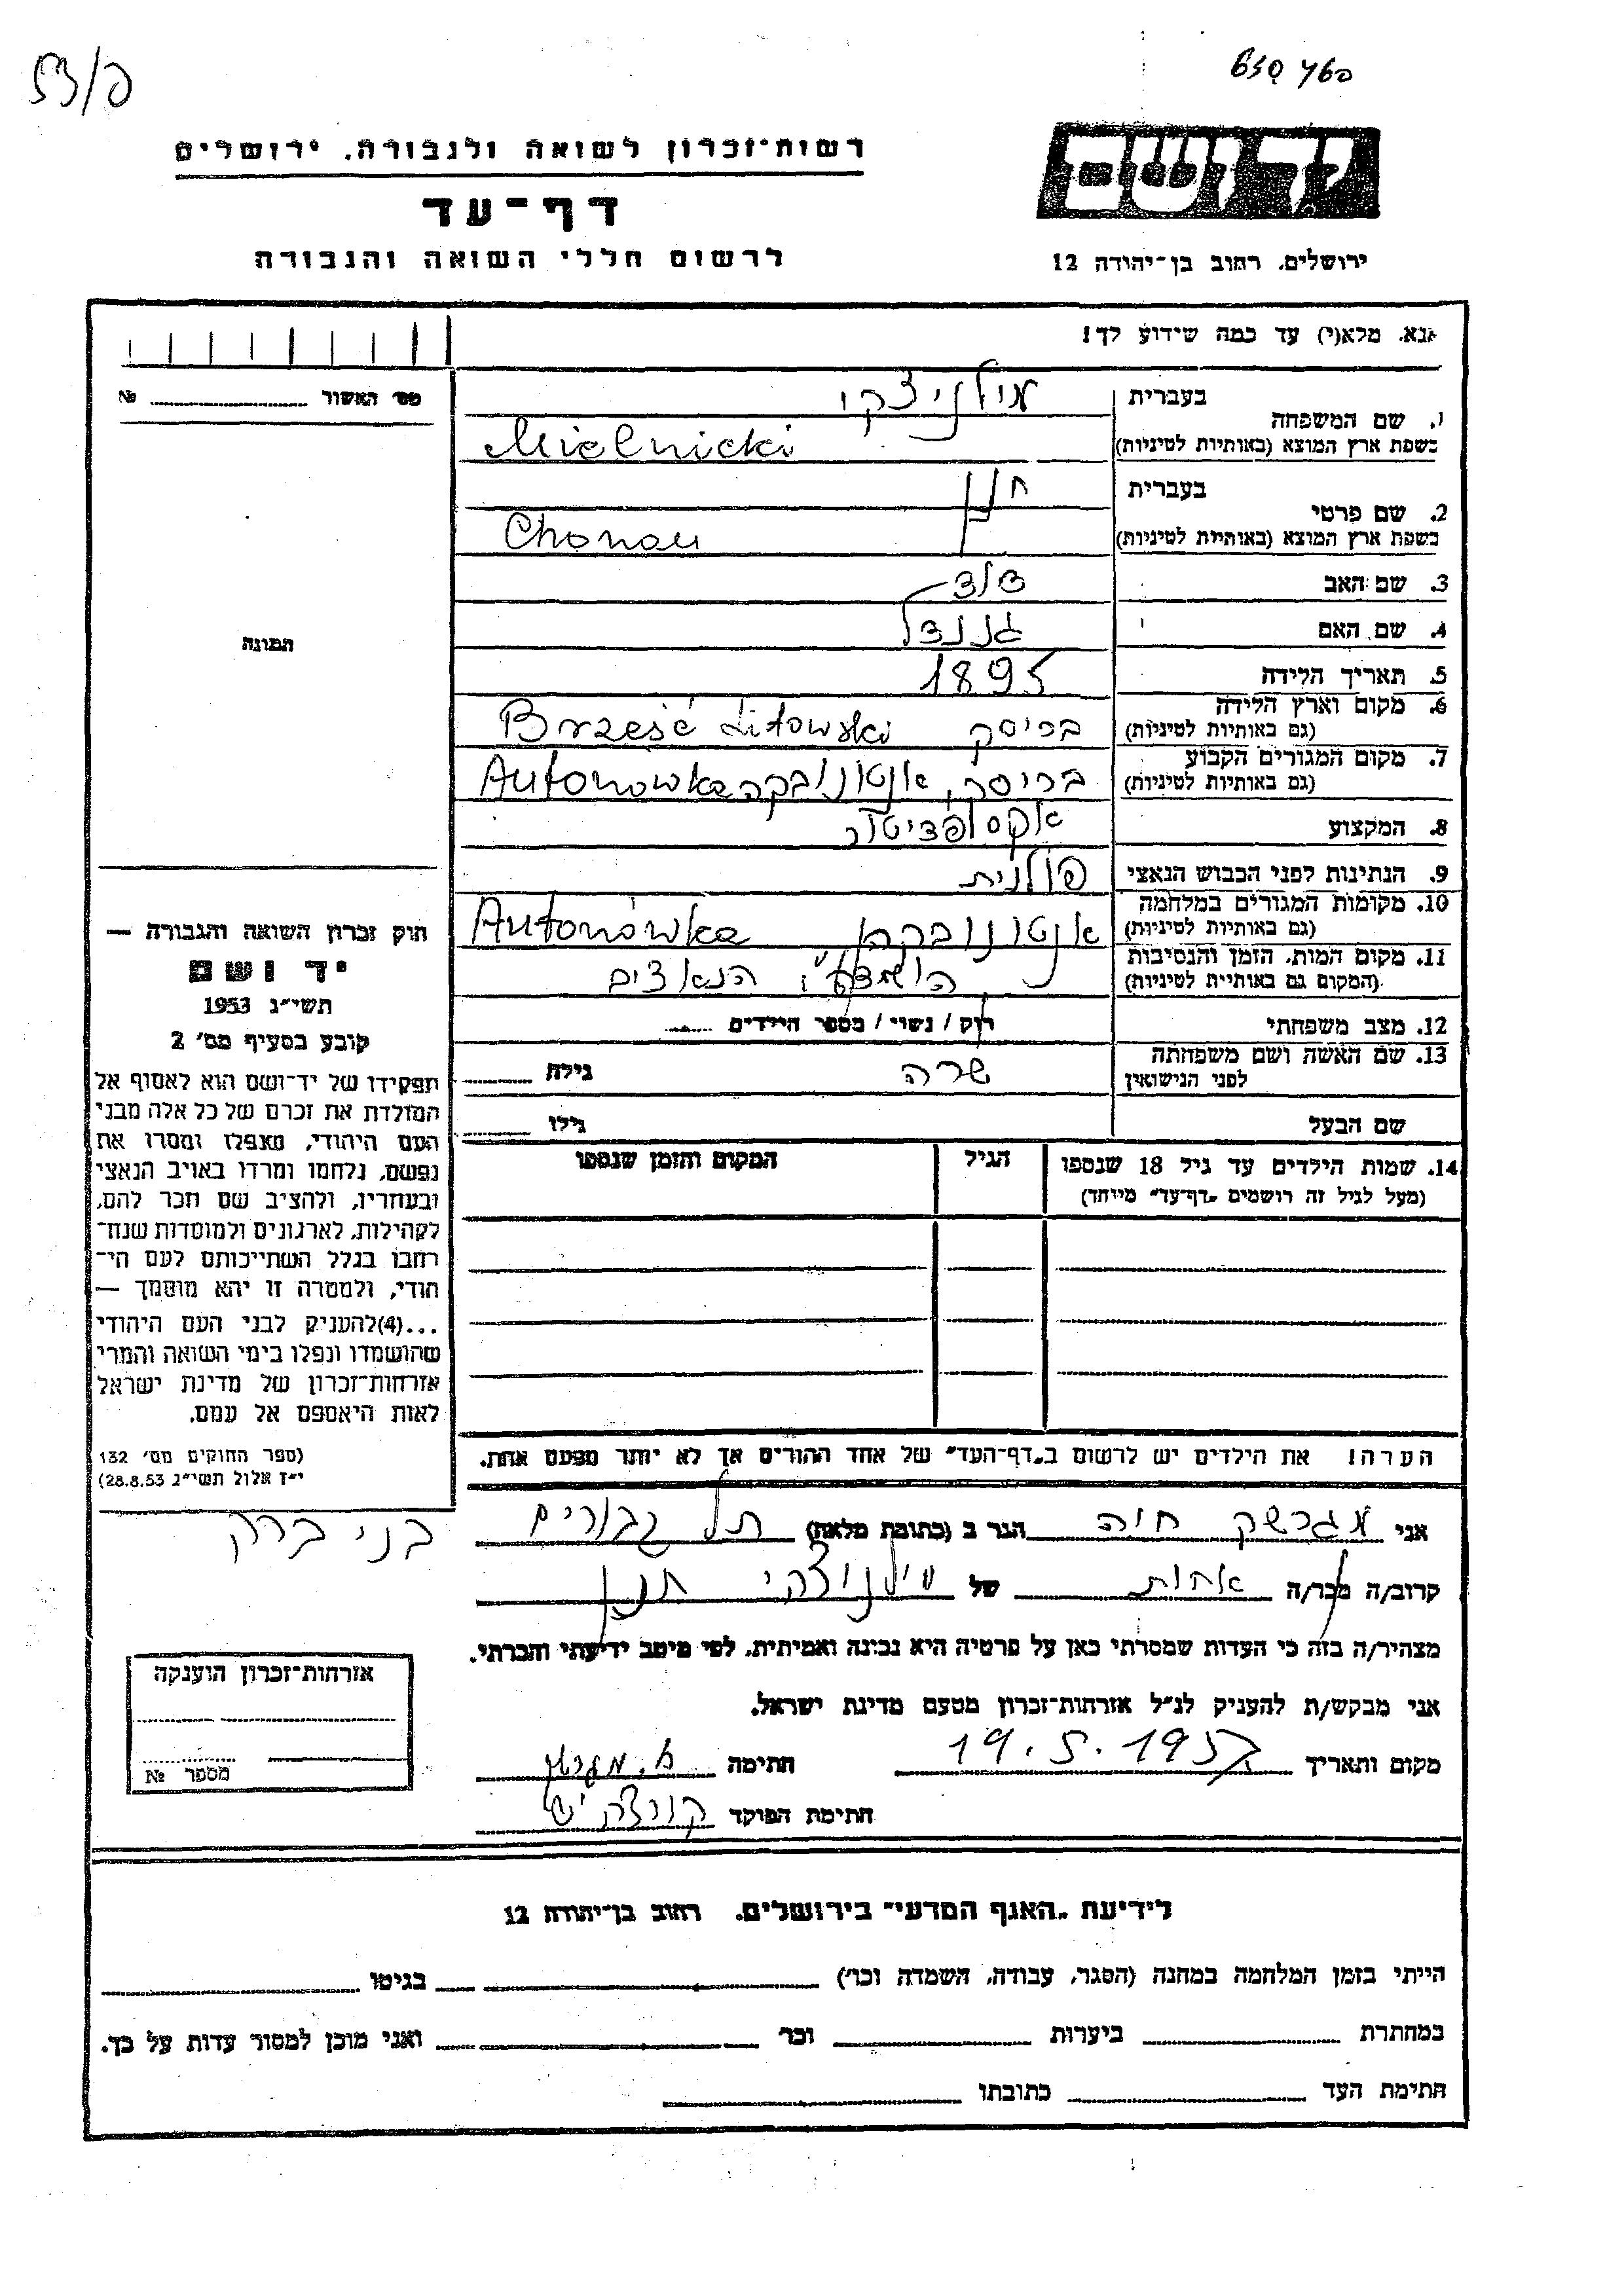 רשות-זכרון לשואה ולגבורה, ירושלים
דף-עד
לרשום חללי השואה והגבורה
יד ושם
ירושלים, רחוב בן-יהודה 12
אנא, מלא(י) עד כמה שידוע לך!
מס' האשור № 
1. שם המשפחה בעברית מילניצקי
בשפת ארץ המוצא (באותיות לטיניות) Mielnicki
2. שם פרטי בעברית חנן
בשפת ארץ המוצא (באותיות לטיניות) Chonon
3. שם האב
4. שם האם
5. תאריך הלידה 1895
6. מקום וארץ הלידה (גם באותיות לטיניות) בריסק Brześć Litowski
7. מקום המגורים הקבוע (גם באותיות לטיניות) בריסק, אנטונובקה Antonówka
8. המקצוע אקספדיטור
9. הנתינות לפני הכבוש הנאצי פולנית
10. מקומות המגורים במלחמה (גם באותיות לטיניות) אנטונובקה Antonówka
11. מקום המות, הזמן והנסיבות (המקום גם באותיות לטיניות) הנאצים
12. מצב משפחתי רוק / נשוי / מספר הילדים
13. שם האשה ושם משפחתה לפני הנישואין שרה גילה
שם הבעל גילו
14. שמות הילדים עד גיל 18 שנספו הגיל המקום והזמן שנספו
(מעל לגיל זה רושמים "דף-עד" מיוחד)
הערה! את הילדים יש לרשום ב"דף-העד" של אחד ההורים אך לא יותר מפעם אחת.
התמונה
חוק זכרון השואה והגבורה —
יד ושם
תשי"ג 1953
קובע בסעיף מס' 2
תפקידו של יד-ושם הוא לאסוף אל
המולדת את זכרם של כל אלה מבני
העם היהודי, שנפלו ומסרו את
נפשם, נלחמו ומרדו באויב הנאצי
ובעוזריו, ולהציב שם וזכר להם,
לקהילות, לארגונים ולמוסדות שנח-
רבו בגלל השתייכותם לעם הי-
הודי, ולמטרה זו יהא מוסמך —
...(4)להעניק לבני העם היהודי
שהושמדו ונפלו בימי השואה והמרי
אזרחות-זכרון של מדינת ישראל
לאות היאספם אל עמם.
(ספר החוקים מס' 132
י"ז אלול תשי"ג 28.8.53)
אני מגרשק חוה הגר ב (כתובת מלאה) תל גבורים
בני ברק
קרוב/ה מכר/ה אחות של מילניצקי חנן
מצהיר/ה בזה כי העדות שמסרתי כאן על פרטיה היא נכונה ואמיתית, לפי מיטב ידיעתי והכרתי.
אני מבקש/ת להעניק לנ"ל אזרחות-זכרון מטעם מדינת ישראל.
מקום ותאריך 19.5.1957 חתימה
חתימת הפוקד
אזרחות-זכרון הוענקה
מספר №
לידיעת "האגף המדעי" בירושלים, רחוב בן-יהודה 12
הייתי בזמן המלחמה במחנה (הסגר, עבודה, השמדה וכו') בגיטו
במחתרת ביערות וכו' ואני מוכן למסור עדות על כך.
חתימת העד כתובתו